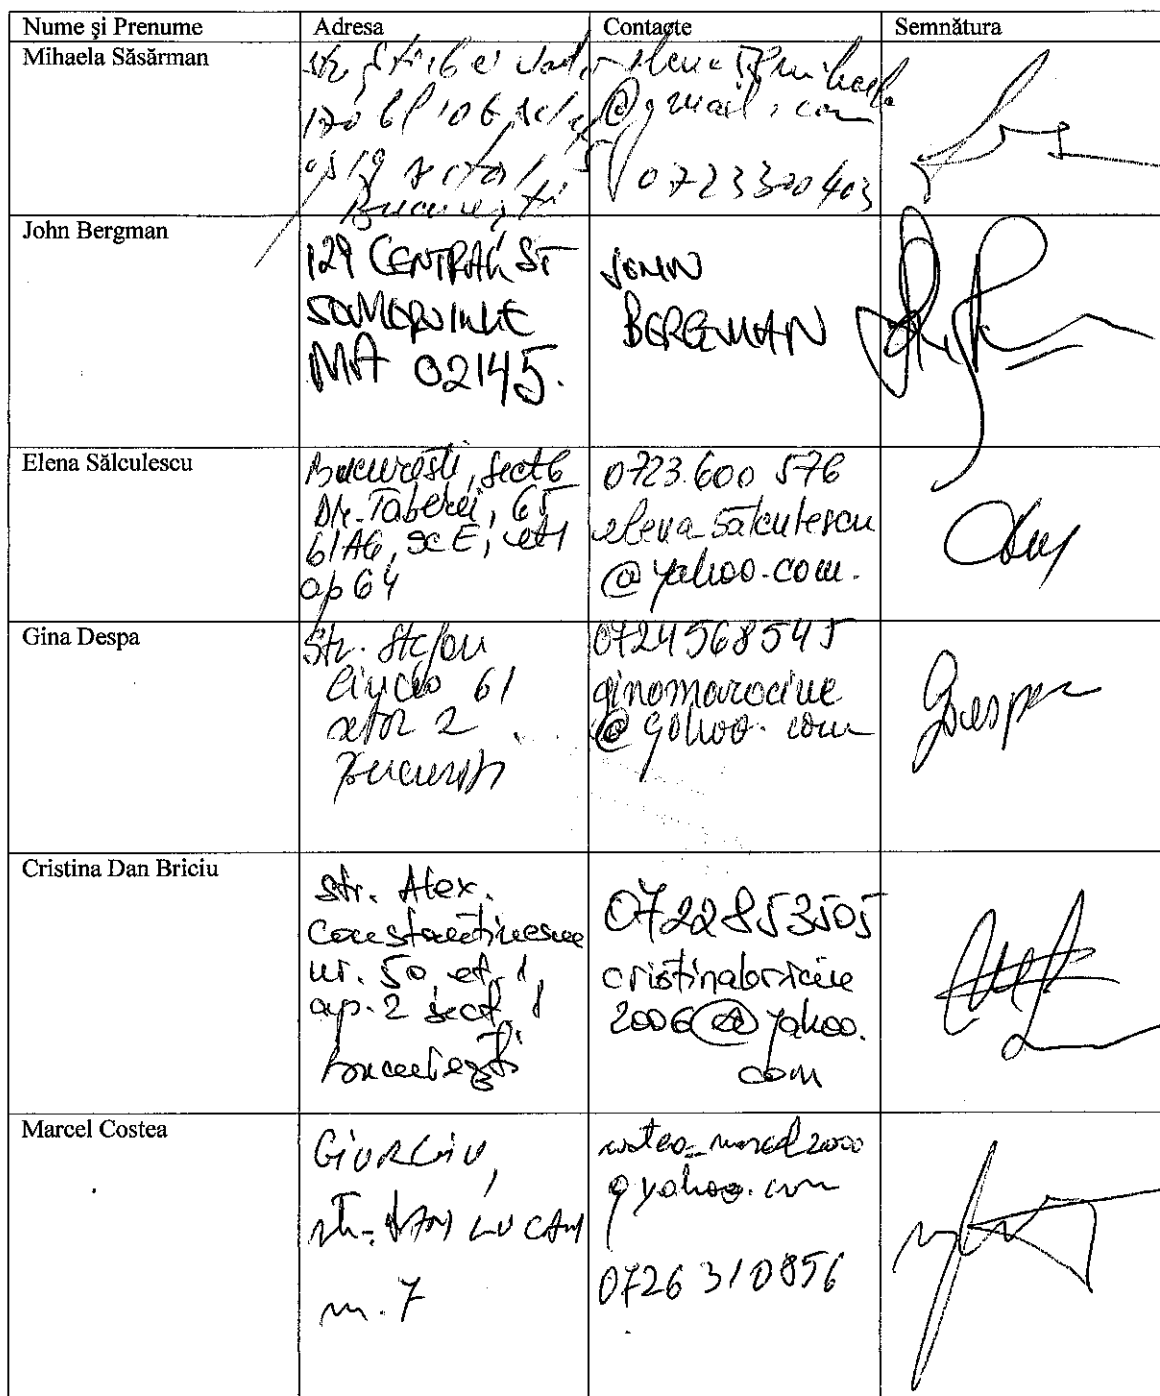 Nume şi Prenume Adresa Contacte Semnătura
Mihaela Săsărman
@gmail.com
0723300403
Bucureşti
John Bergman
129 CENTRAL ST
SOMERVILLE
MA 02145.
JOHN
BERGMAN
Elena Sălculescu
Bucureşti, sect 6
Dr. Taberei, 65
bl A6, sc E, et 1
ap 64
0723.600 576
elena_salculescu
@yahoo.com.
Gina Despa
Str. Stefan
61
sector 2
Bucureşti
0724568545
@yahoo.com
Cristina Dan Briciu
str. Alex.
Constantinescu
nr. 50, et. 1,
ap. 2 sect. 1
Bucureşti
0722853505
cristinabriciu
2006@yahoo.
com
Marcel Costea
GIURGIU,
nr. 7
costea_marcel2000
@yahoo.com
0726 310856